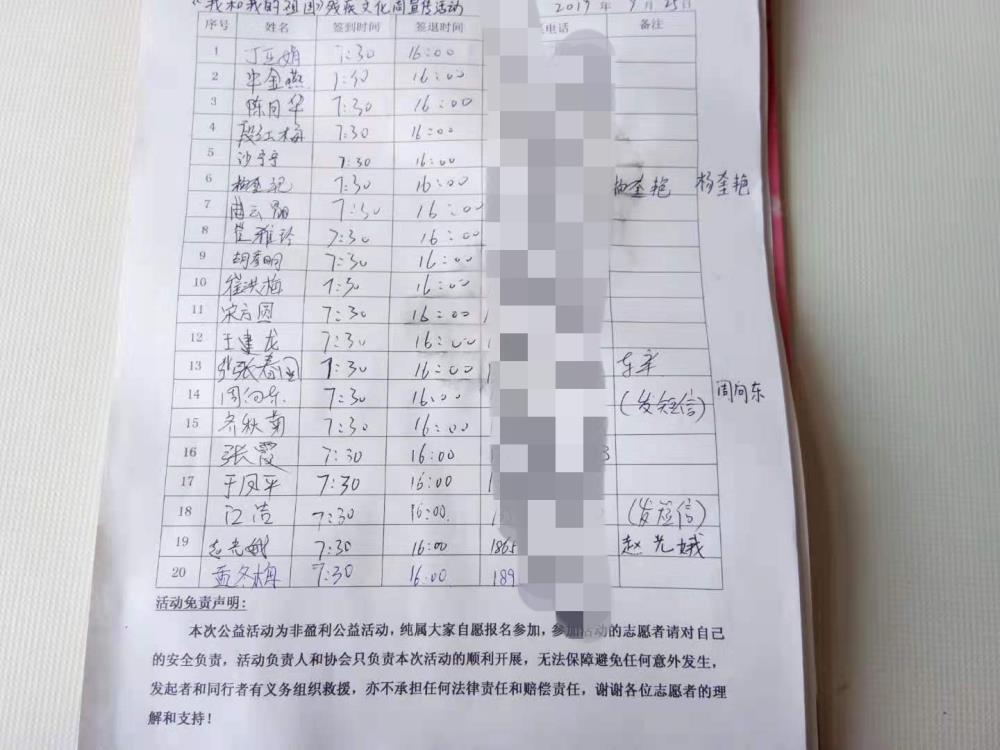 《我和我的祖国》残疾文化周宣传活动 2019年9月25日
序号 姓名 签到时间 签退时间 电话 备注
1 丁立娟 7:30 16:00
2 金燕 7:30 16:00
3 陈月华 7:30 16:00
4 段红梅 7:30 16:00
5 沙宁宁 7:30 16:00
6 7:30 16:00 杨奎艳 杨奎艳
7 曲云 7:30 16:00
8 雅玲 7:30 16:00
9 胡秀明 7:30 16:00
10 崔洪梅 7:30 16:00
11 宋方圆 7:30 16:00
12 王建龙 7:30 16:00
13 张春国 7:30 16:00
14 周向东 7:30 16:00 (发短信) 周向东
15 齐秋菊 7:30 16:00
16 张霞 7:30 16:00 3
17 于凤平 7:30 16:00
18 江洁 7:30 16:00 (发短信)
19 赵光娥 7:30 16:00 1865 赵光娥
20 黄冬梅 7:30 16:00 189
活动免责声明:
本次公益活动为非盈利公益活动，纯属大家自愿报名参加，参加活动的志愿者请对自己
的安全负责，活动负责人和协会只负责本次活动的顺利开展，无法保障避免任何意外发生，
发起者和同行者有义务组织救援，亦不承担任何法律责任和赔偿责任，谢谢各位志愿者的理
解和支持！